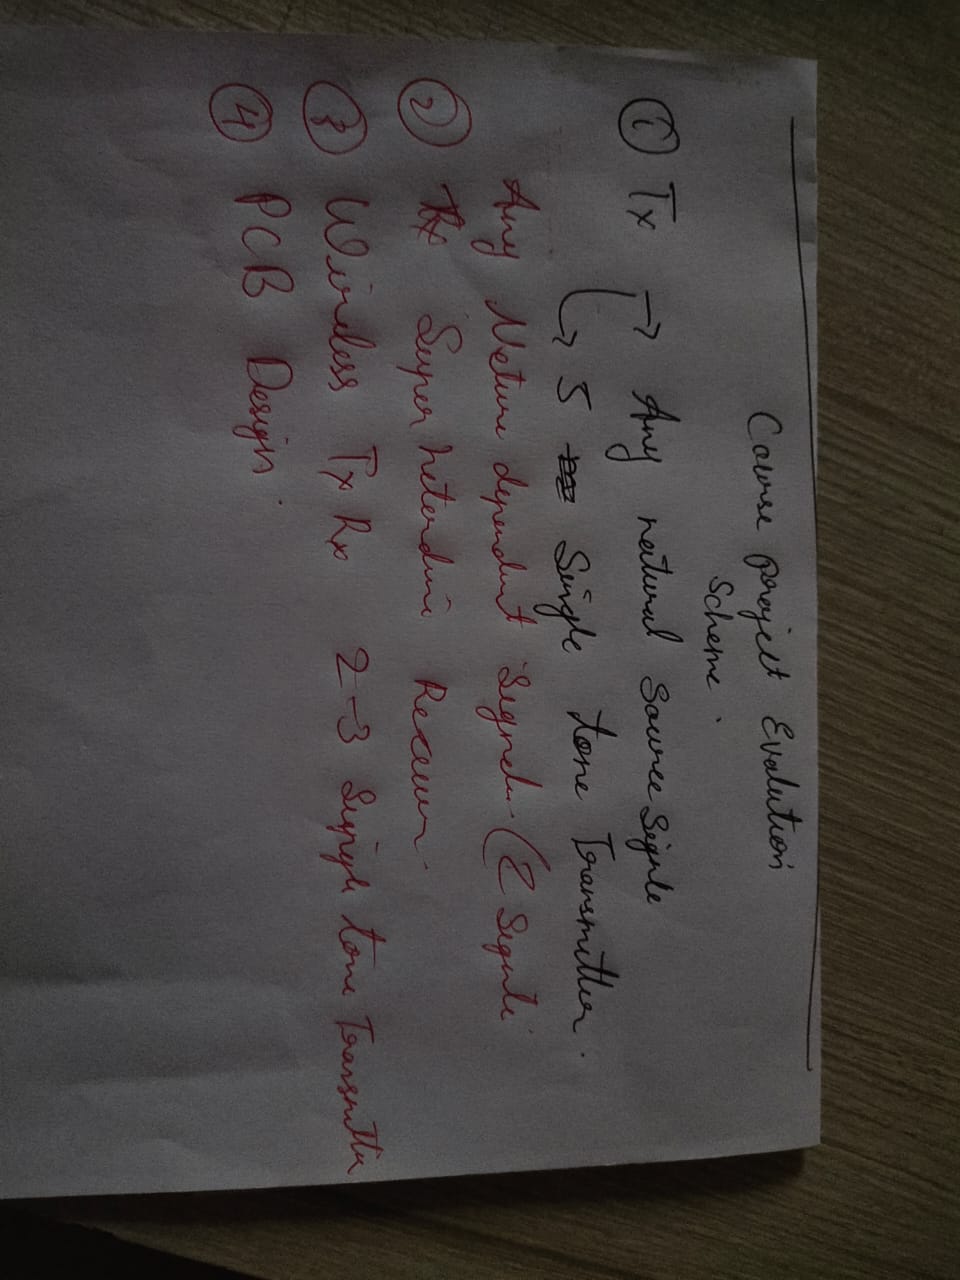 Course project Evalution
Scheme .
① Tx → Any natural Source Signle
→ 5 Single tone Transmitter .
Any Nature dependent Signals (2 Signle
② Rx Super heterdine Receiver .
③ Wireless Tx Rx 2-3 Single tone Transmitter
④ PCB Design .